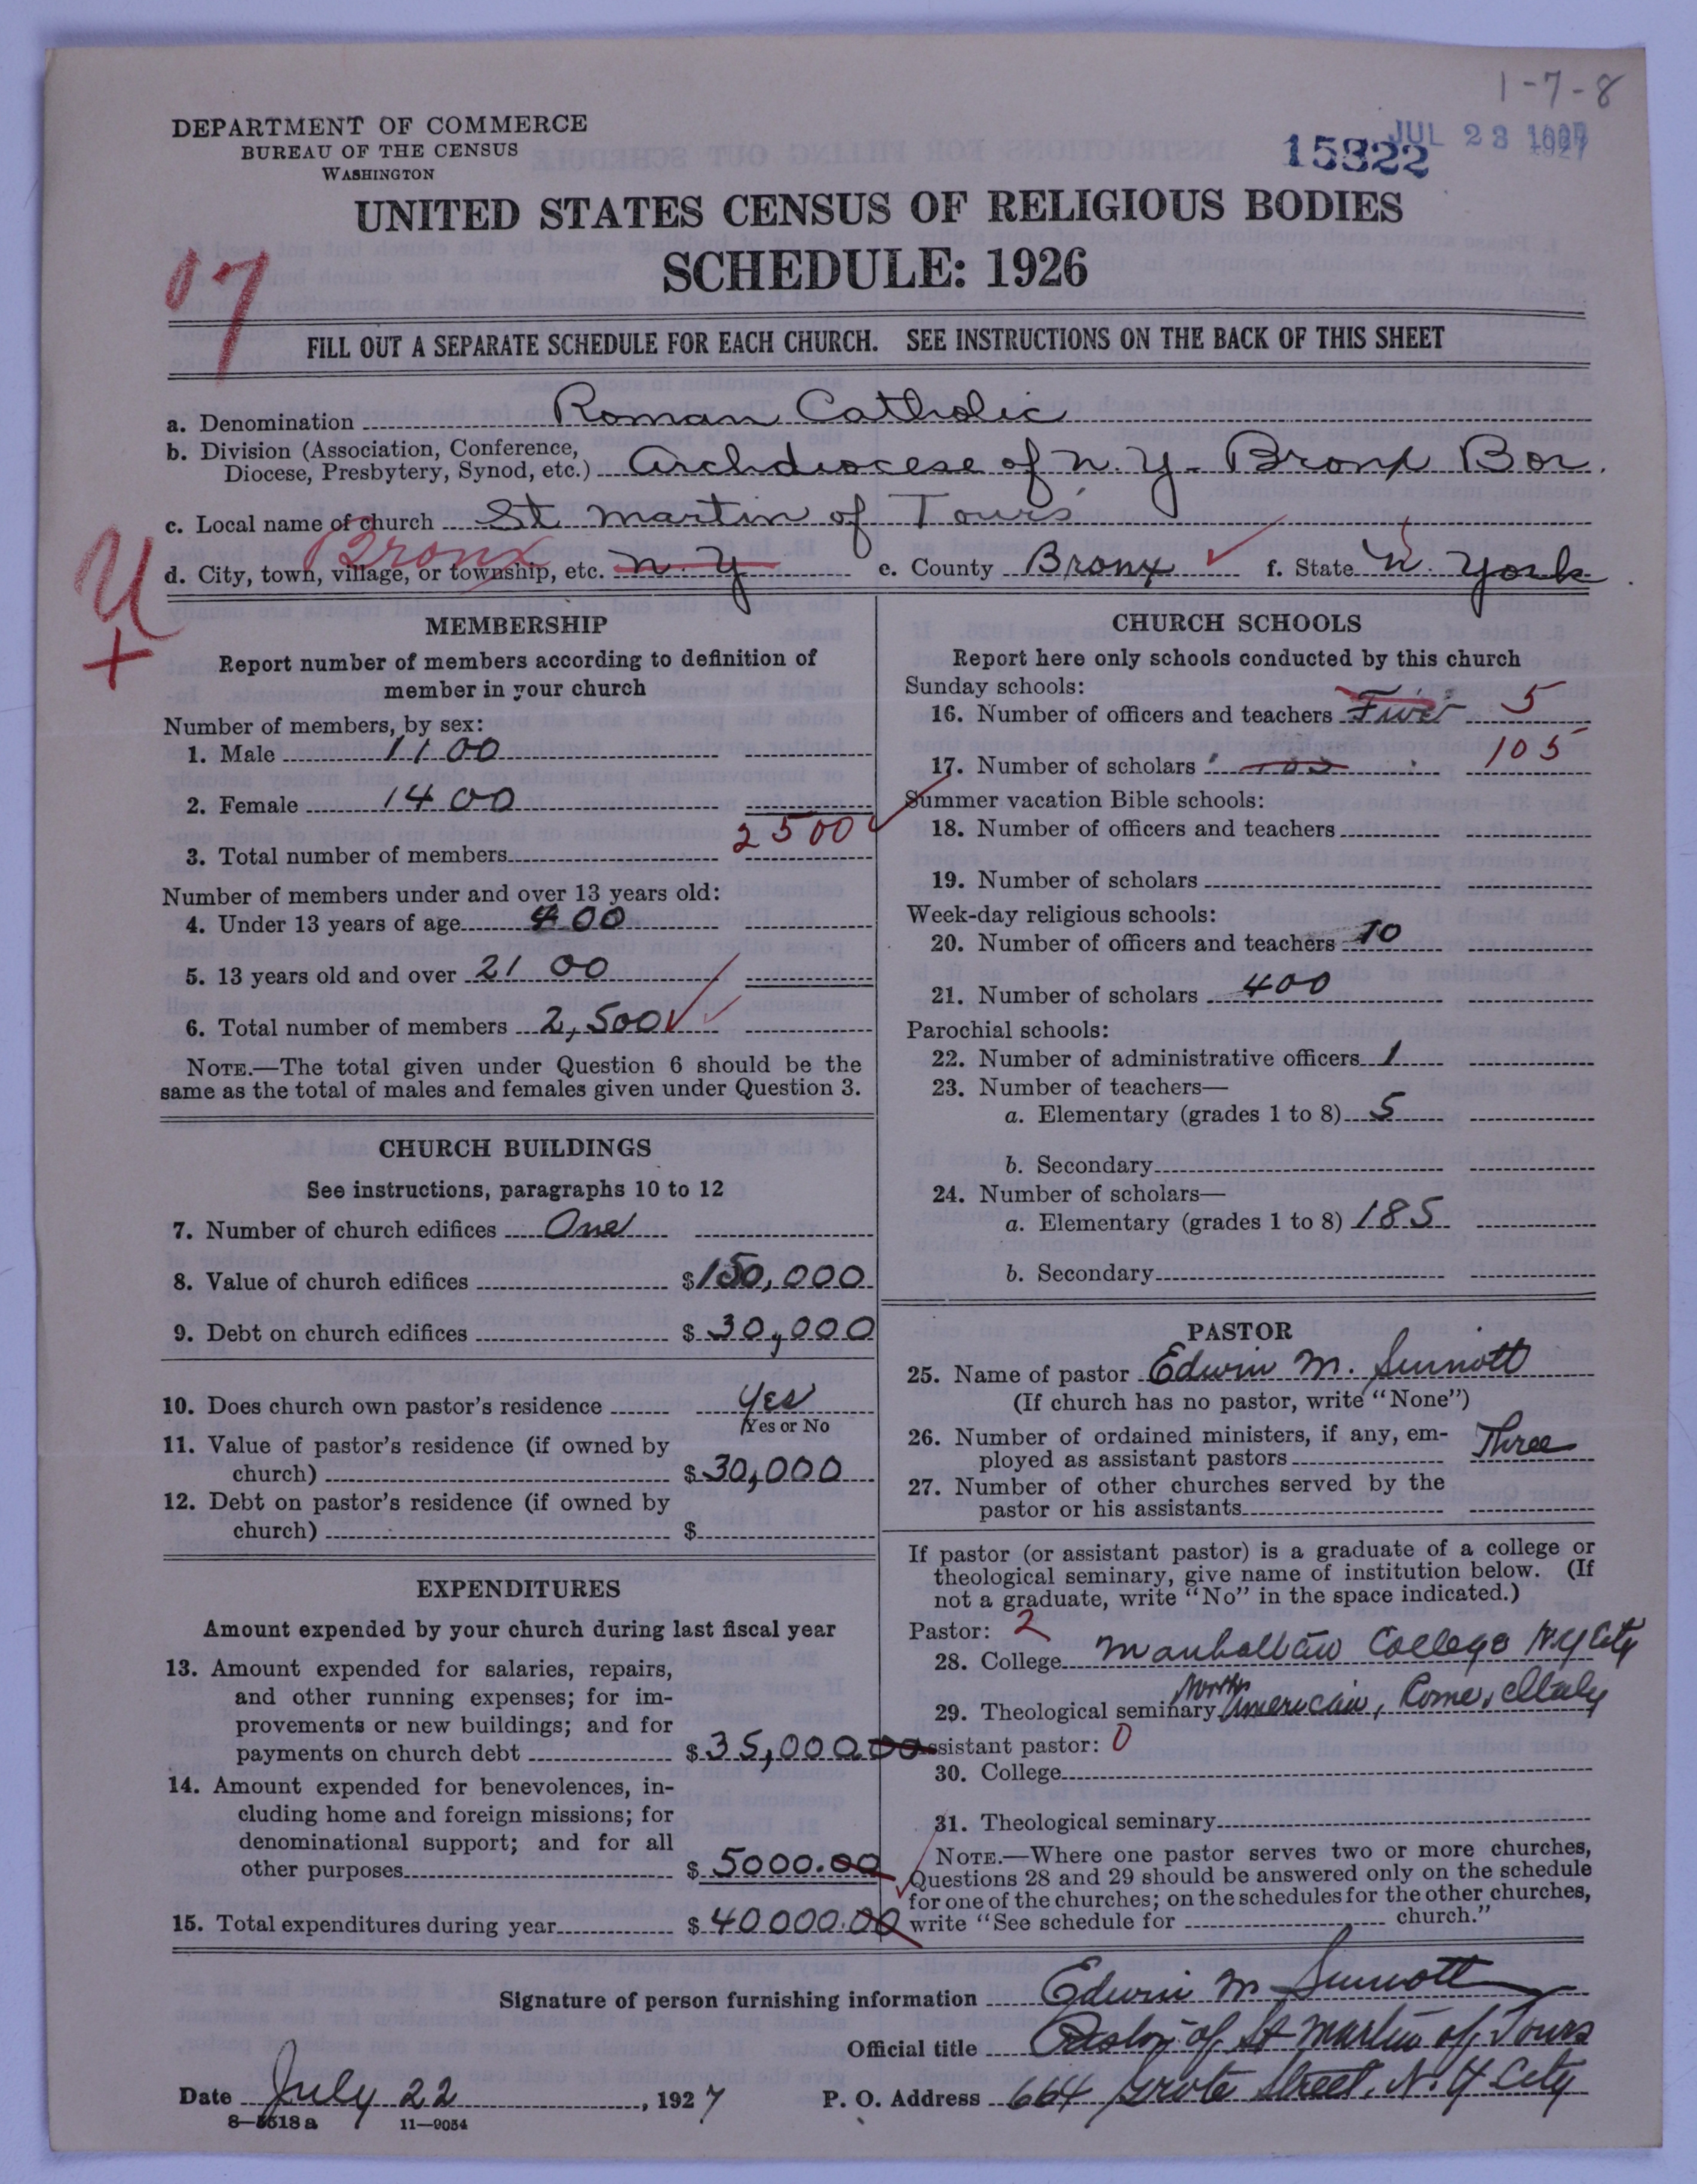 1-7-8
DEPARTMENT OF COMMERCE
BUREAU OF THE CENSUS
WASHINGTON
15322
JUL 23 1927
UNITED STATES CENSUS OF RELIGIOUS BODIES
SCHEDULE: 1926
17
FILL OUT A SEPARATE SCHEDULE FOR EACH CHURCH. SEE INSTRUCTIONS ON THE BACK OF THIS SHEET
a. Denomination Roman Catholic
b. Division (Association, Conference,
Diocese, Presbytery, Synod, etc.) Archdiocese of N. Y. Bronx Bor.
c. Local name of church St Martin of Tours
Bronx
d. City, town, village, or township, etc. N. Y e. County Bronx f. State N. York
U
+
MEMBERSHIP
Report number of members according to definition of
member in your church
Number of members, by sex:
1. Male 1100
2. Female 1400
3. Total number of members 2500
Number of members under and over 13 years old:
4. Under 13 years of age 400
5. 13 years old and over 2100
6. Total number of members 2,500
NOTE.—The total given under Question 6 should be the
same as the total of males and females given under Question 3.
CHURCH BUILDINGS
See instructions, paragraphs 10 to 12
7. Number of church edifices One
8. Value of church edifices $150,000
9. Debt on church edifices $30,000
10. Does church own pastor's residence Yes
Yes or No
11. Value of pastor's residence (if owned by
church) $30,000
12. Debt on pastor's residence (if owned by
church) $
EXPENDITURES
Amount expended by your church during last fiscal year
13. Amount expended for salaries, repairs,
and other running expenses; for im-
provements or new buildings; and for
payments on church debt $35,000.00
14. Amount expended for benevolences, in-
cluding home and foreign missions; for
denominational support; and for all
other purposes $5000.00
15. Total expenditures during year $40000.00
CHURCH SCHOOLS
Report here only schools conducted by this church
Sunday schools:
16. Number of officers and teachers Five 5
17. Number of scholars 105 105
Summer vacation Bible schools:
18. Number of officers and teachers
19. Number of scholars
Week-day religious schools:
20. Number of officers and teachers 10
21. Number of scholars 400
Parochial schools:
22. Number of administrative officers 1
23. Number of teachers—
a. Elementary (grades 1 to 8) 5
b. Secondary
24. Number of scholars—
a. Elementary (grades 1 to 8) 185
b. Secondary
PASTOR
25. Name of pastor Edwin M. Sinnott
(If church has no pastor, write "None")
26. Number of ordained ministers, if any, em-
ployed as assistant pastors Three
27. Number of other churches served by the
pastor or his assistants
If pastor (or assistant pastor) is a graduate of a college or
theological seminary, give name of institution below. (If
not a graduate, write "No" in the space indicated.)
Pastor: 2
28. College Manhattan College N.Y City
29. Theological seminary North American, Rome, Italy
Assistant pastor: 0
30. College
31. Theological seminary
NOTE.—Where one pastor serves two or more churches,
Questions 28 and 29 should be answered only on the schedule
for one of the churches; on the schedules for the other churches,
write "See schedule for church."
Signature of person furnishing information Edwin M Sinnott
Official title Pastor of St Martin of Tours
Date July 22, 1927 P. O. Address 664 Grote Street, N. Y City
8—5518 a 11—9054